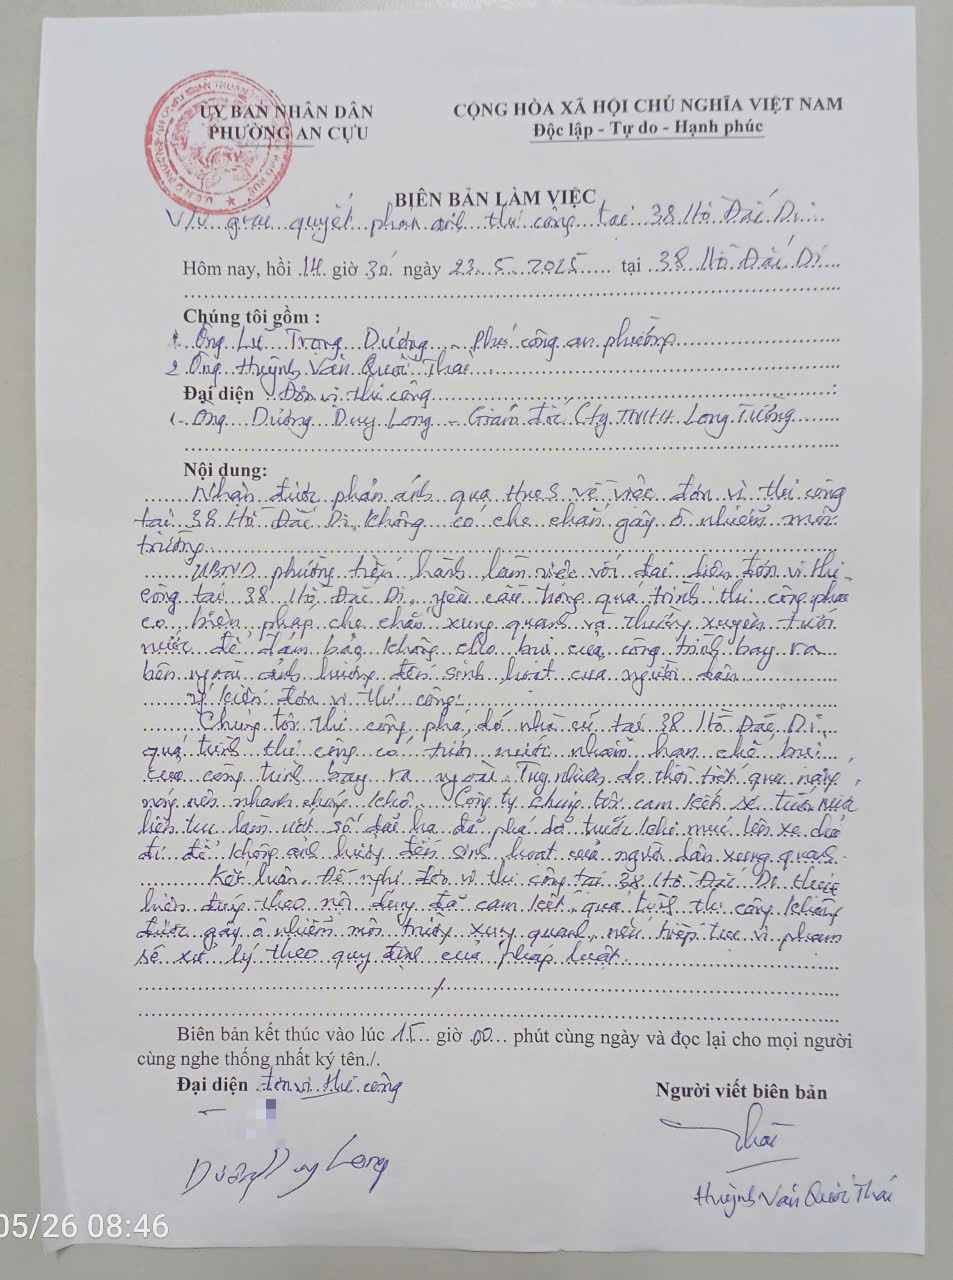 ỦY BAN NHÂN DÂN
PHƯỜNG AN CỰU
CỘNG HÒA XÃ HỘI CHỦ NGHĨA VIỆT NAM
Độc lập - Tự do - Hạnh phúc
BIÊN BẢN LÀM VIỆC
V/v giải quyết phản ánh thi công tại 38 Hồ Đắc Di
Hôm nay, hồi 14 giờ 30 ngày 23.5.2025 tại 38 Hồ Đắc Di
Chúng tôi gồm :
1. Ông Lữ Trọng Dương - Phó công an phường
2 Ông Huỳnh Văn Quốc Thái
Đại diện : Đơn vị thi công :
1- Ông Dương Duy Long - Giám đốc Cty TNHH Long Tường
Nội dung:
Nhận được phản ánh qua HueS về việc đơn vị thi công
tại 38 Hồ Đắc Di không có che chắn gây ô nhiễm môi
trường
UBND phường tiến hành làm việc với đại diện đơn vị thi
công tại 38 Hồ Đắc Di, yêu cầu trong quá trình thi công phải
có biện pháp che chắn xung quanh và thường xuyên tưới
nước để đảm bảo không cho bụi của công trình bay ra
bên ngoài ảnh hưởng đến sinh hoạt của người dân
Ý kiến đơn vị thi công:
Chúng tôi thi công phá dỡ nhà cũ tại 38 Hồ Đắc Di,
quá trình thi công có tưới nước nhằm hạn chế bụi
của công trình bay ra ngoài. Tuy nhiên, do thời tiết quá nắng
này nên nhanh chóng khô. Công ty chúng tôi cam kết sẽ tưới nước
liên tục làm ướt số đất đá đã phá dỡ trước khi múc lên xe chở
đi để không ảnh hưởng đến sinh hoạt của người dân xung quanh.
Kết luận: Đề nghị đơn vị thi công tại 38 Hồ Đắc Di thực
hiện đúng theo nội dung đã cam kết, quá trình thi công không
được gây ô nhiễm môi trường xung quanh, nếu tiếp tục vi phạm
sẽ xử lý theo quy định của pháp luật.
Biên bản kết thúc vào lúc 15 giờ 00 phút cùng ngày và đọc lại cho mọi người
cùng nghe thống nhất ký tên./.
Đại diện đơn vị thi công
Người viết biên bản
Thái
Dương Duy Long
Huỳnh Văn Quốc Thái
05/26 08:46